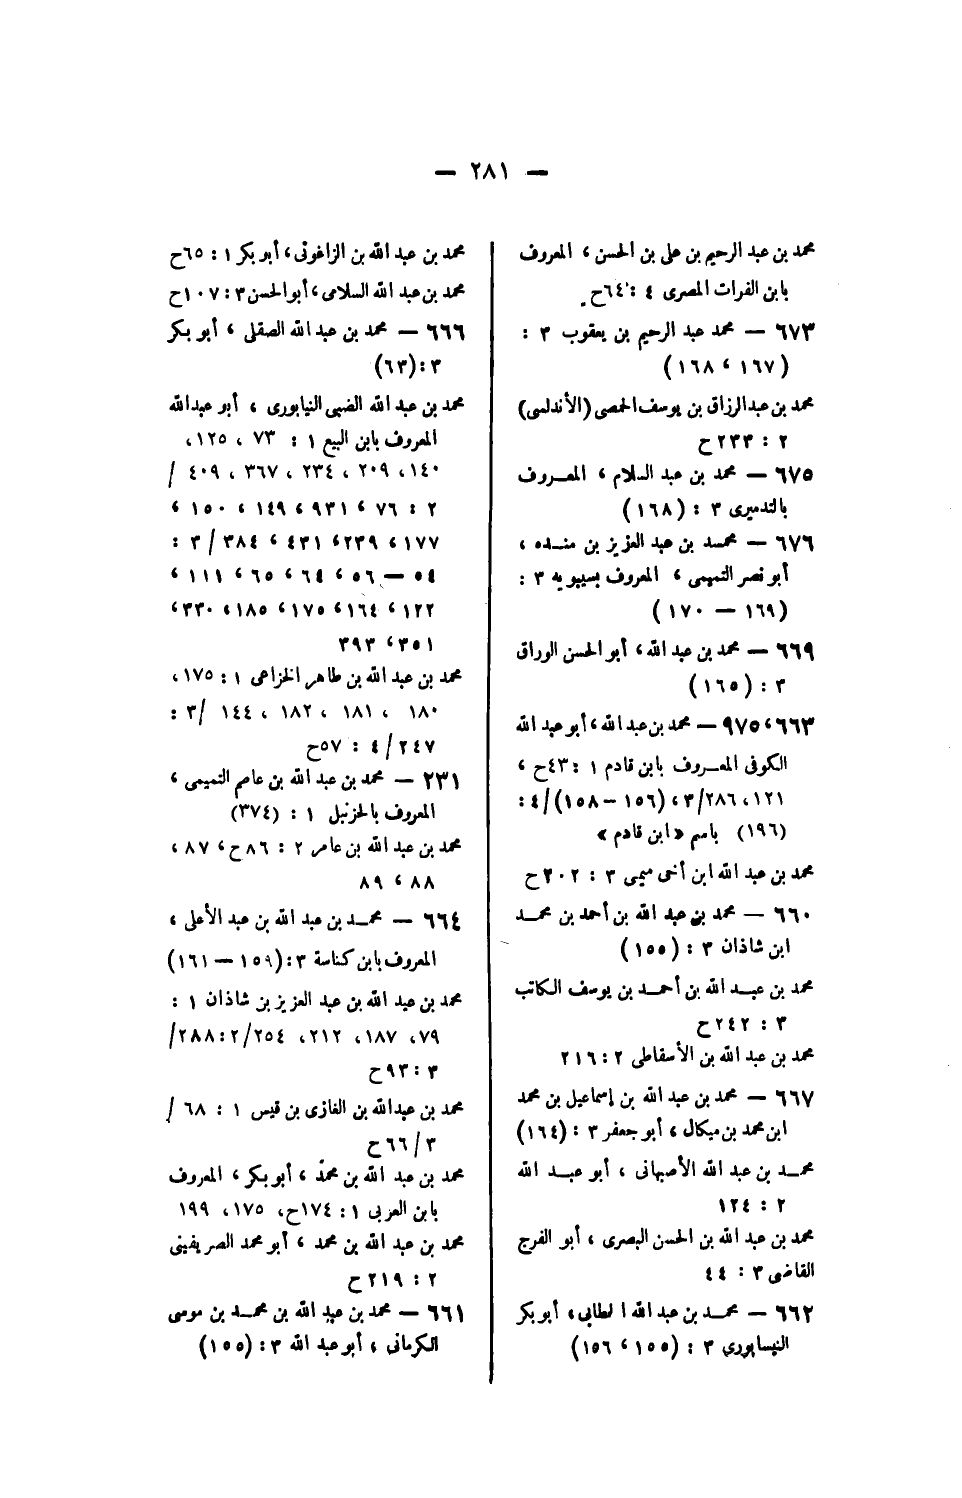 — ٢٨١ —
محمد بن عبد الرحيم بن على بن الحسن ، المعروف
بابن الفرات المصرى ٤ : ٦٤ح .
٦٧٣ — محمد عبد الرحيم بن يعقوب ٣ :
(١٦٧ ، ١٦٨)
محمد بن عبدالرزاق بن يوسف الحمصى (الأندلسى)
٢ : ٢٣٣ ح
٦٧٥ — محمد بن عبد السلام ، المعـــروف
بالتدميرى ٣ : (١٦٨)
٦٧٦ — محمسد بن عبد العزيز بن منـــده ،
أبو نصر التميمى ، المعروف بسيبويه ٣ :
(١٦٩ — ١٧٠)
٦٦٩ — محمد بن عبد الله ، أبو الحسن الوراق
٣ : (١٦٥)
٦٦٣ ، ٩٧٥ — محمد بن عبد الله ، أبو عبد الله
الكوفى المعــروف بابن قادم ١ : ٤٣ح ،
١٢١ ، ٢٨٦/٣ ، (١٥٦ – ١٥٨)/ ٤ :
(١٩٦) باسم « ابن قادم »
محمد بن عبد الله ابن أخى ميمى ٣ : ٢٠٢ ح
٦٦٠ — محمد بن عبد الله بن أحمد بن محمـــد
ابن شاذان ٣ : (١٥٥)
محمد بن عبـــد الله بن أحمـــد بن يوسف الكاتب
٣ : ٢٤٢ ح
محمد بن عبد الله بن الأسقاطى ٢ : ٢١٦
٦٦٧ — محمد بن عبد الله بن إسماعيل بن محمد
ابن محمد بن ميكال ، أبو جعفر ٣ : (١٦٤)
محمـــد بن عبد الله الأصبهانى ، أبو عبـــد الله
٢ : ١٢٤
محمد بن عبد الله بن الحسن البصرى ، أبو الفرج
القاضى ٣ : ٤٤
٦٦٢ — محمـــد بن عبد الله الطابى ، أبو بكر
النيسابورى ٣ : (١٥٥ ، ١٥٦)
محمد بن عبد الله بن الزاغونى ، أبو بكر ١ : ٦٥ح
محمد بن عبد الله السلامى ، أبو الحسن ٣ : ١٠٧ح
٦٦٦ — محمد بن عبد الله الصقلى ، أبو بكر
٣ : (٦٣)
محمد بن عبد الله الضبى النيابورى ، أبو عبدالله
المعروف بابن البيع ١ : ٧٣ ، ١٢٥ ،
١٤٠ ، ٢٠٩ ، ٢٣٤ ، ٣٦٧ ، ٤٠٩ /
٢ : ٧٦ ، ٩٣١ ، ١٤٩ ، ١٥٠ ،
١٧٧ ، ٢٣٩ ، ٤٣١ ، ٣٨٤ / ٣ :
٥٤ — ٥٦ ، ٦٤ ، ٦٥ ، ١١١ ،
١٢٢ ، ١٦٤ ، ١٧٥ ، ١٨٥ ، ٣٣٠ ،
٣٥١ ، ٣٩٣
محمد بن عبد الله بن طاهر الخزاعى ١ : ١٧٥ ،
١٨٠ ، ١٨١ ، ١٨٢ ، ١٤٤ /٣ :
٢٤٧ / ٤ : ٥٧ح
٢٣١ — محمد بن عبد الله بن عاصم التميمى ،
المعروف بالحزنبل ١ : (٣٧٤)
محمد بن عبد الله بن عامر ٢ : ٨٦ ح ، ٨٧ ،
٨٨ ، ٨٩
٦٦٤ — محمـــد بن عبد الله بن عبد الأعلى ،
المعروف بابن كناسة ٣ : (١٥٩ – ١٦١)
محمد بن عبد الله بن عبد العزيز بن شاذان ١ :
٧٩ ، ١٨٧ ، ٢١٢ ، ٢٥٤/ ٢ : ٢٨٨/
٣ : ٩٣ ح
محمد بن عبدالله بن الغازى بن قيس ١ : ٦٨ /
٣ / ٦٦ ح
محمد بن عبد الله بن محمد ، أبو بكر ، المعروف
بابن العربى ١ : ١٧٤ح ، ١٧٥ ، ١٩٩
محمد بن عبد الله بن محمد ، أبو محمد الصريفينى
٢ : ٢١٩ ح
٦٦١ — محمد بن عبد الله بن محمـــد بن موسى
الكرمانى ، أبو عبد الله ٣ : (١٥٥)